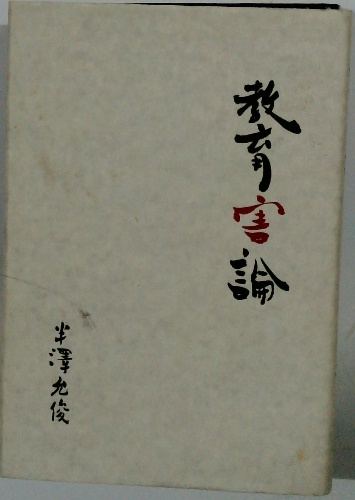 教育害論
半澤允俊